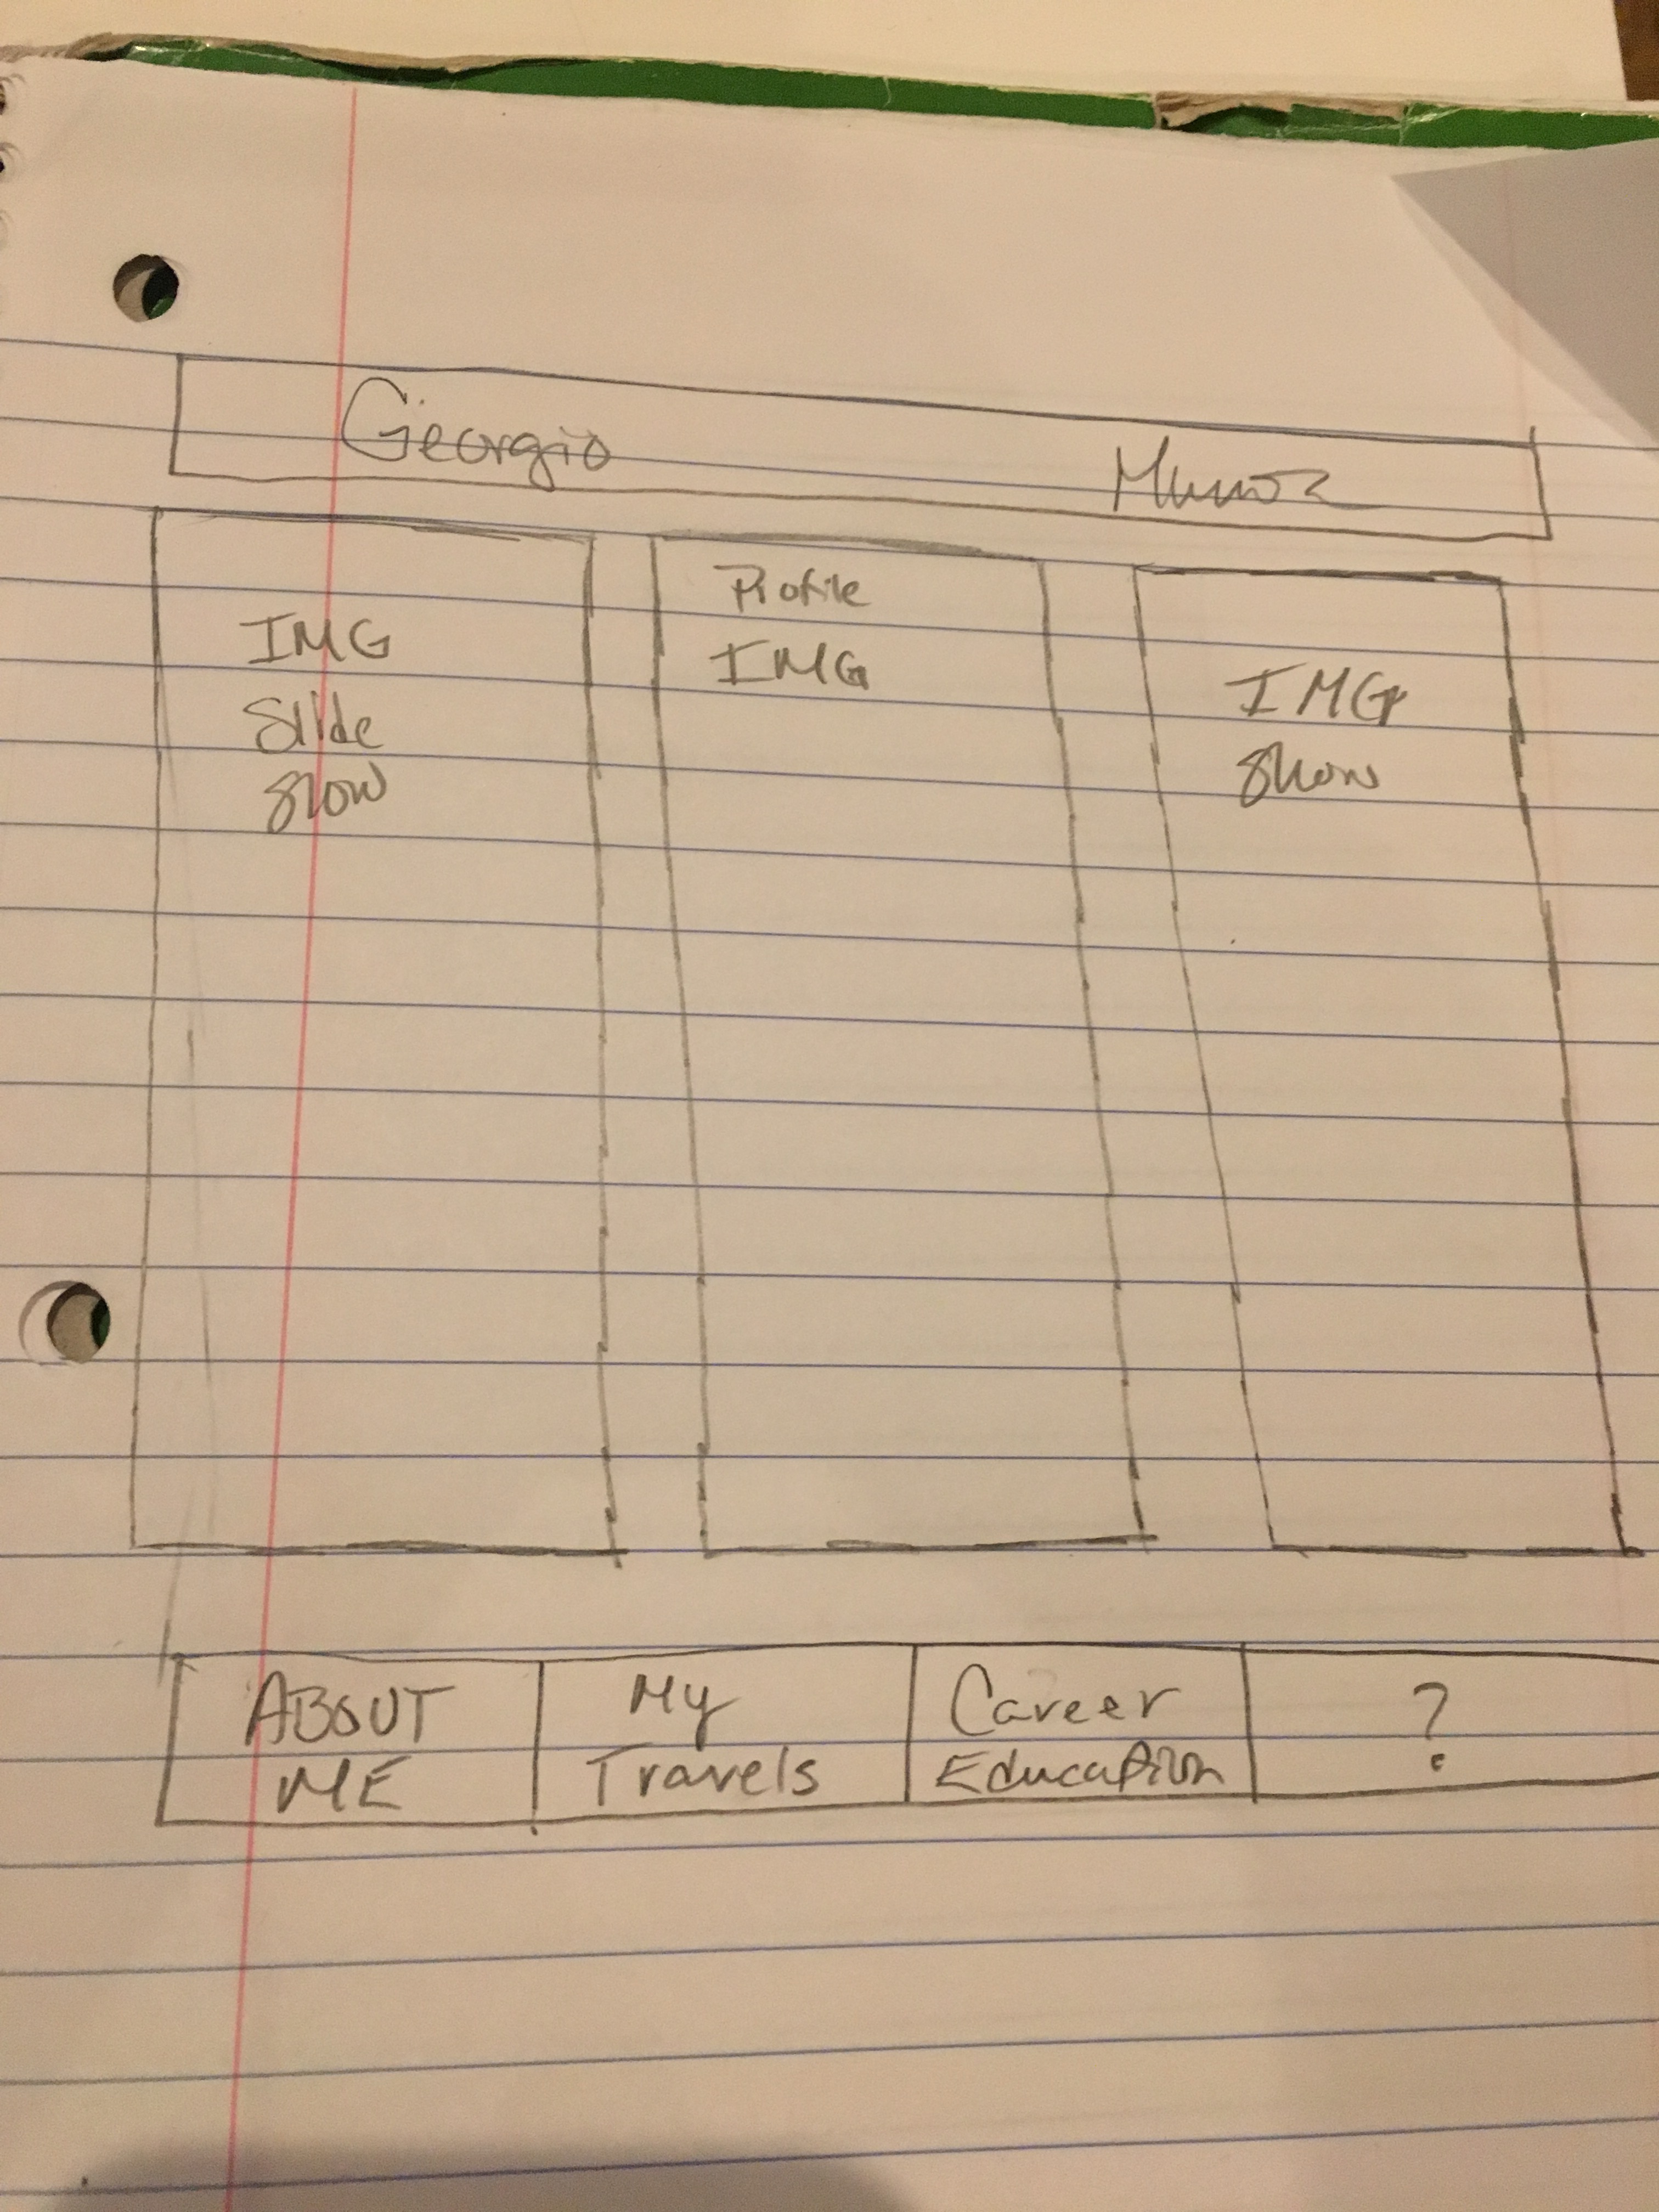 Georgio Munoz
IMG
Slide
Show
Profile
IMG
IMG
Show
ABOUT
ME
My
Travels
Career
Education
?